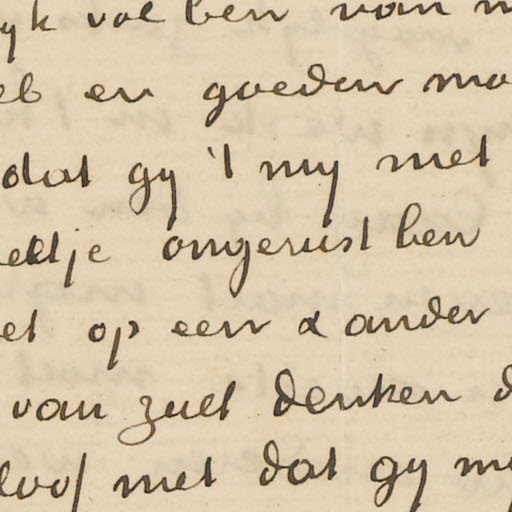 yk vol ben van
eb en goeden mo
dat gy 't my met
eetje ongerust ben
et op een & ander
van zult denken d
met dat gy my